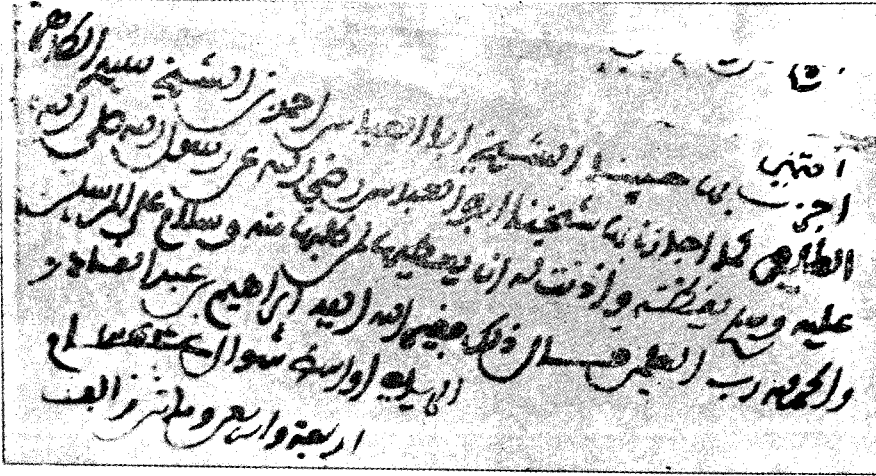 انتهى
اجزت بها حبيبنا الشيخ ابا العباس احمد بن الشيخ سيد الطاهر
كما اجازنا بها شيخنا ابو العباس رضي الله عن رسول الله صلى الله
عليه وسلم يقظة واذنت له ان يعطيها لمن طلبها منه وسلام على المرسلين
والحمد لله رب العلمين قال ذلك فقير الله العبد ابراهيم بن عبد القادر
الرياحي اواسط شوال
اربعة واربعين ومائتين والف